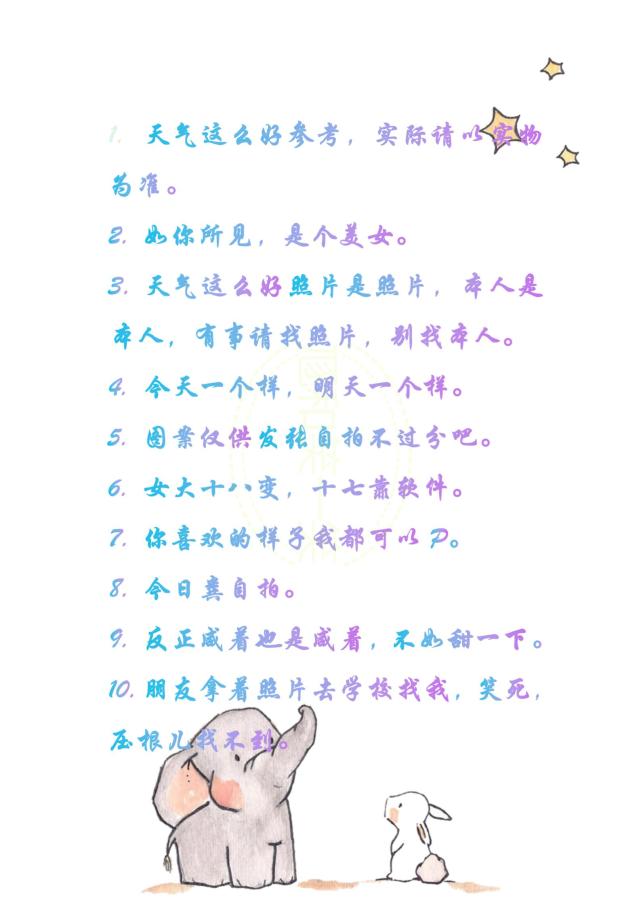 1. 天气这么好参考，实际请以实物
为准。
2. 如你所见，是个美女。
3. 天气这么好照片是照片，本人是
本人，有事请找照片，别找本人。
4. 今天一个样，明天一个样。
5. 图案仅供发张自拍不过分吧。
6. 女大十八变，十七靠软件。
7. 你喜欢的样子我都可以P。
8. 今日龚自拍。
9. 反正咸着也是咸着，不如甜一下。
10. 朋友拿着照片去学校找我，笑死，
压根儿找不到。